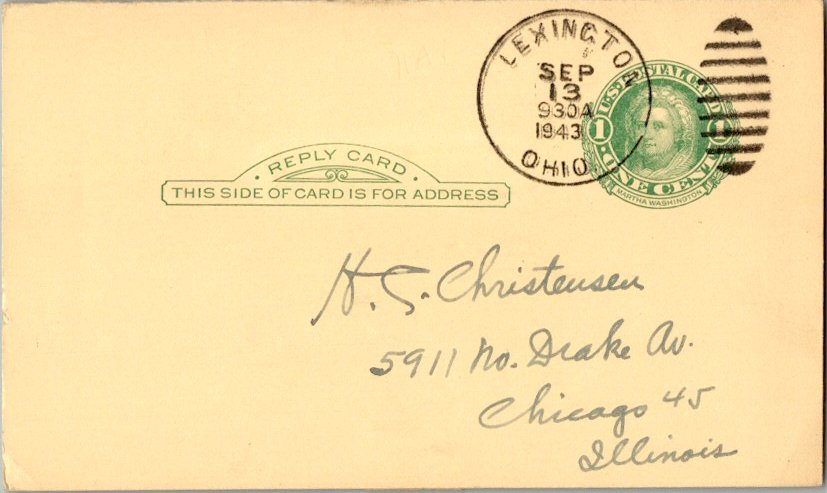 LEXINGTON
SEP
13
930A
1943
OHIO
U.S. POSTAL CARD
1 1
ONE CENT
MARTHA WASHINGTON
REPLY CARD
THIS SIDE OF CARD IS FOR ADDRESS
H. S. Christensen
5911 No. Drake Av.
Chicago 45
Illinois